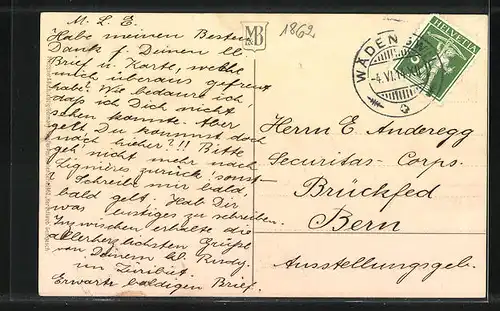 M. L. E.
Habe meinen Besten
Dank f. Deinen lb.
Brief u. Karte, welche
mich überaus gefreut
habe. Wie bedaure ich,
daß ich Dich nicht
sehen konnte. Aber
gelt, Du kommst doch
noch hieher?!! Bitte
geh' nicht mehr nach
Lignières zurück sonst
Schreibe mir bald
bald gelt. Hab Dir
was lustiges zu schreiben.
Inzwischen erhalte die
allerherzlichsten Grüße
von Deinem lb.
Erwarte baldigen Brief.
MB
1862
WÄDENSWIL
4.VI.14
HELVETIA
5
Herrn E. Anderegg
Securitas-Corps.
Brückfed
Bern
Ausstellungsgeb.